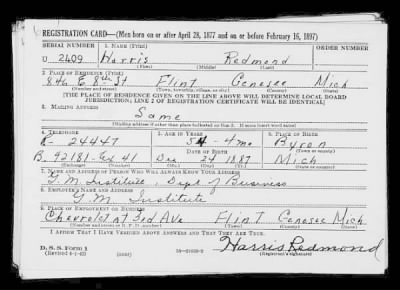 REGISTRATION CARD—(Men born on or after April 28, 1877 and on or before February 16, 1897)
SERIAL NUMBER 1. NAME (Print) ORDER NUMBER
U 2409 Harris Redmond
(First) (Middle) (Last)
2. PLACE OF RESIDENCE (Print)
E 8th St Flint Genesee Mich
(Number and street) (Town, township, village, or city) (County) (State)
[THE PLACE OF RESIDENCE GIVEN ON THE LINE ABOVE WILL DETERMINE LOCAL BOARD
JURISDICTION; LINE 2 OF REGISTRATION CERTIFICATE WILL BE IDENTICAL]
3. MAILING ADDRESS
Same
[Mailing address if other than place indicated on line 2. If same insert word same]
4. TELEPHONE 5. AGE IN YEARS 6. PLACE OF BIRTH
24447 54 - 4 mo Byron
DATE OF BIRTH (Town or county)
B. 92181 - Ex 41 Dec 24 1887 Mich
(Exchange) (Number) (Mo.) (Day) (Yr.) (State or country)
7. NAME AND ADDRESS OF PERSON WHO WILL ALWAYS KNOW YOUR ADDRESS
G.M. Institute, Dept of Business
8. EMPLOYER'S NAME AND ADDRESS
G.M. Institute
9. PLACE OF EMPLOYMENT OR BUSINESS
Chevrolet at 3rd Ave Flint Genesee Mich
(Number and street or R. F. D. number) (Town) (County) (State)
I AFFIRM THAT I HAVE VERIFIED ABOVE ANSWERS AND THAT THEY ARE TRUE.
D. S. S. Form 1
(Revised 4-1-42) (over)
Harris Redmond
(Registrant's signature)